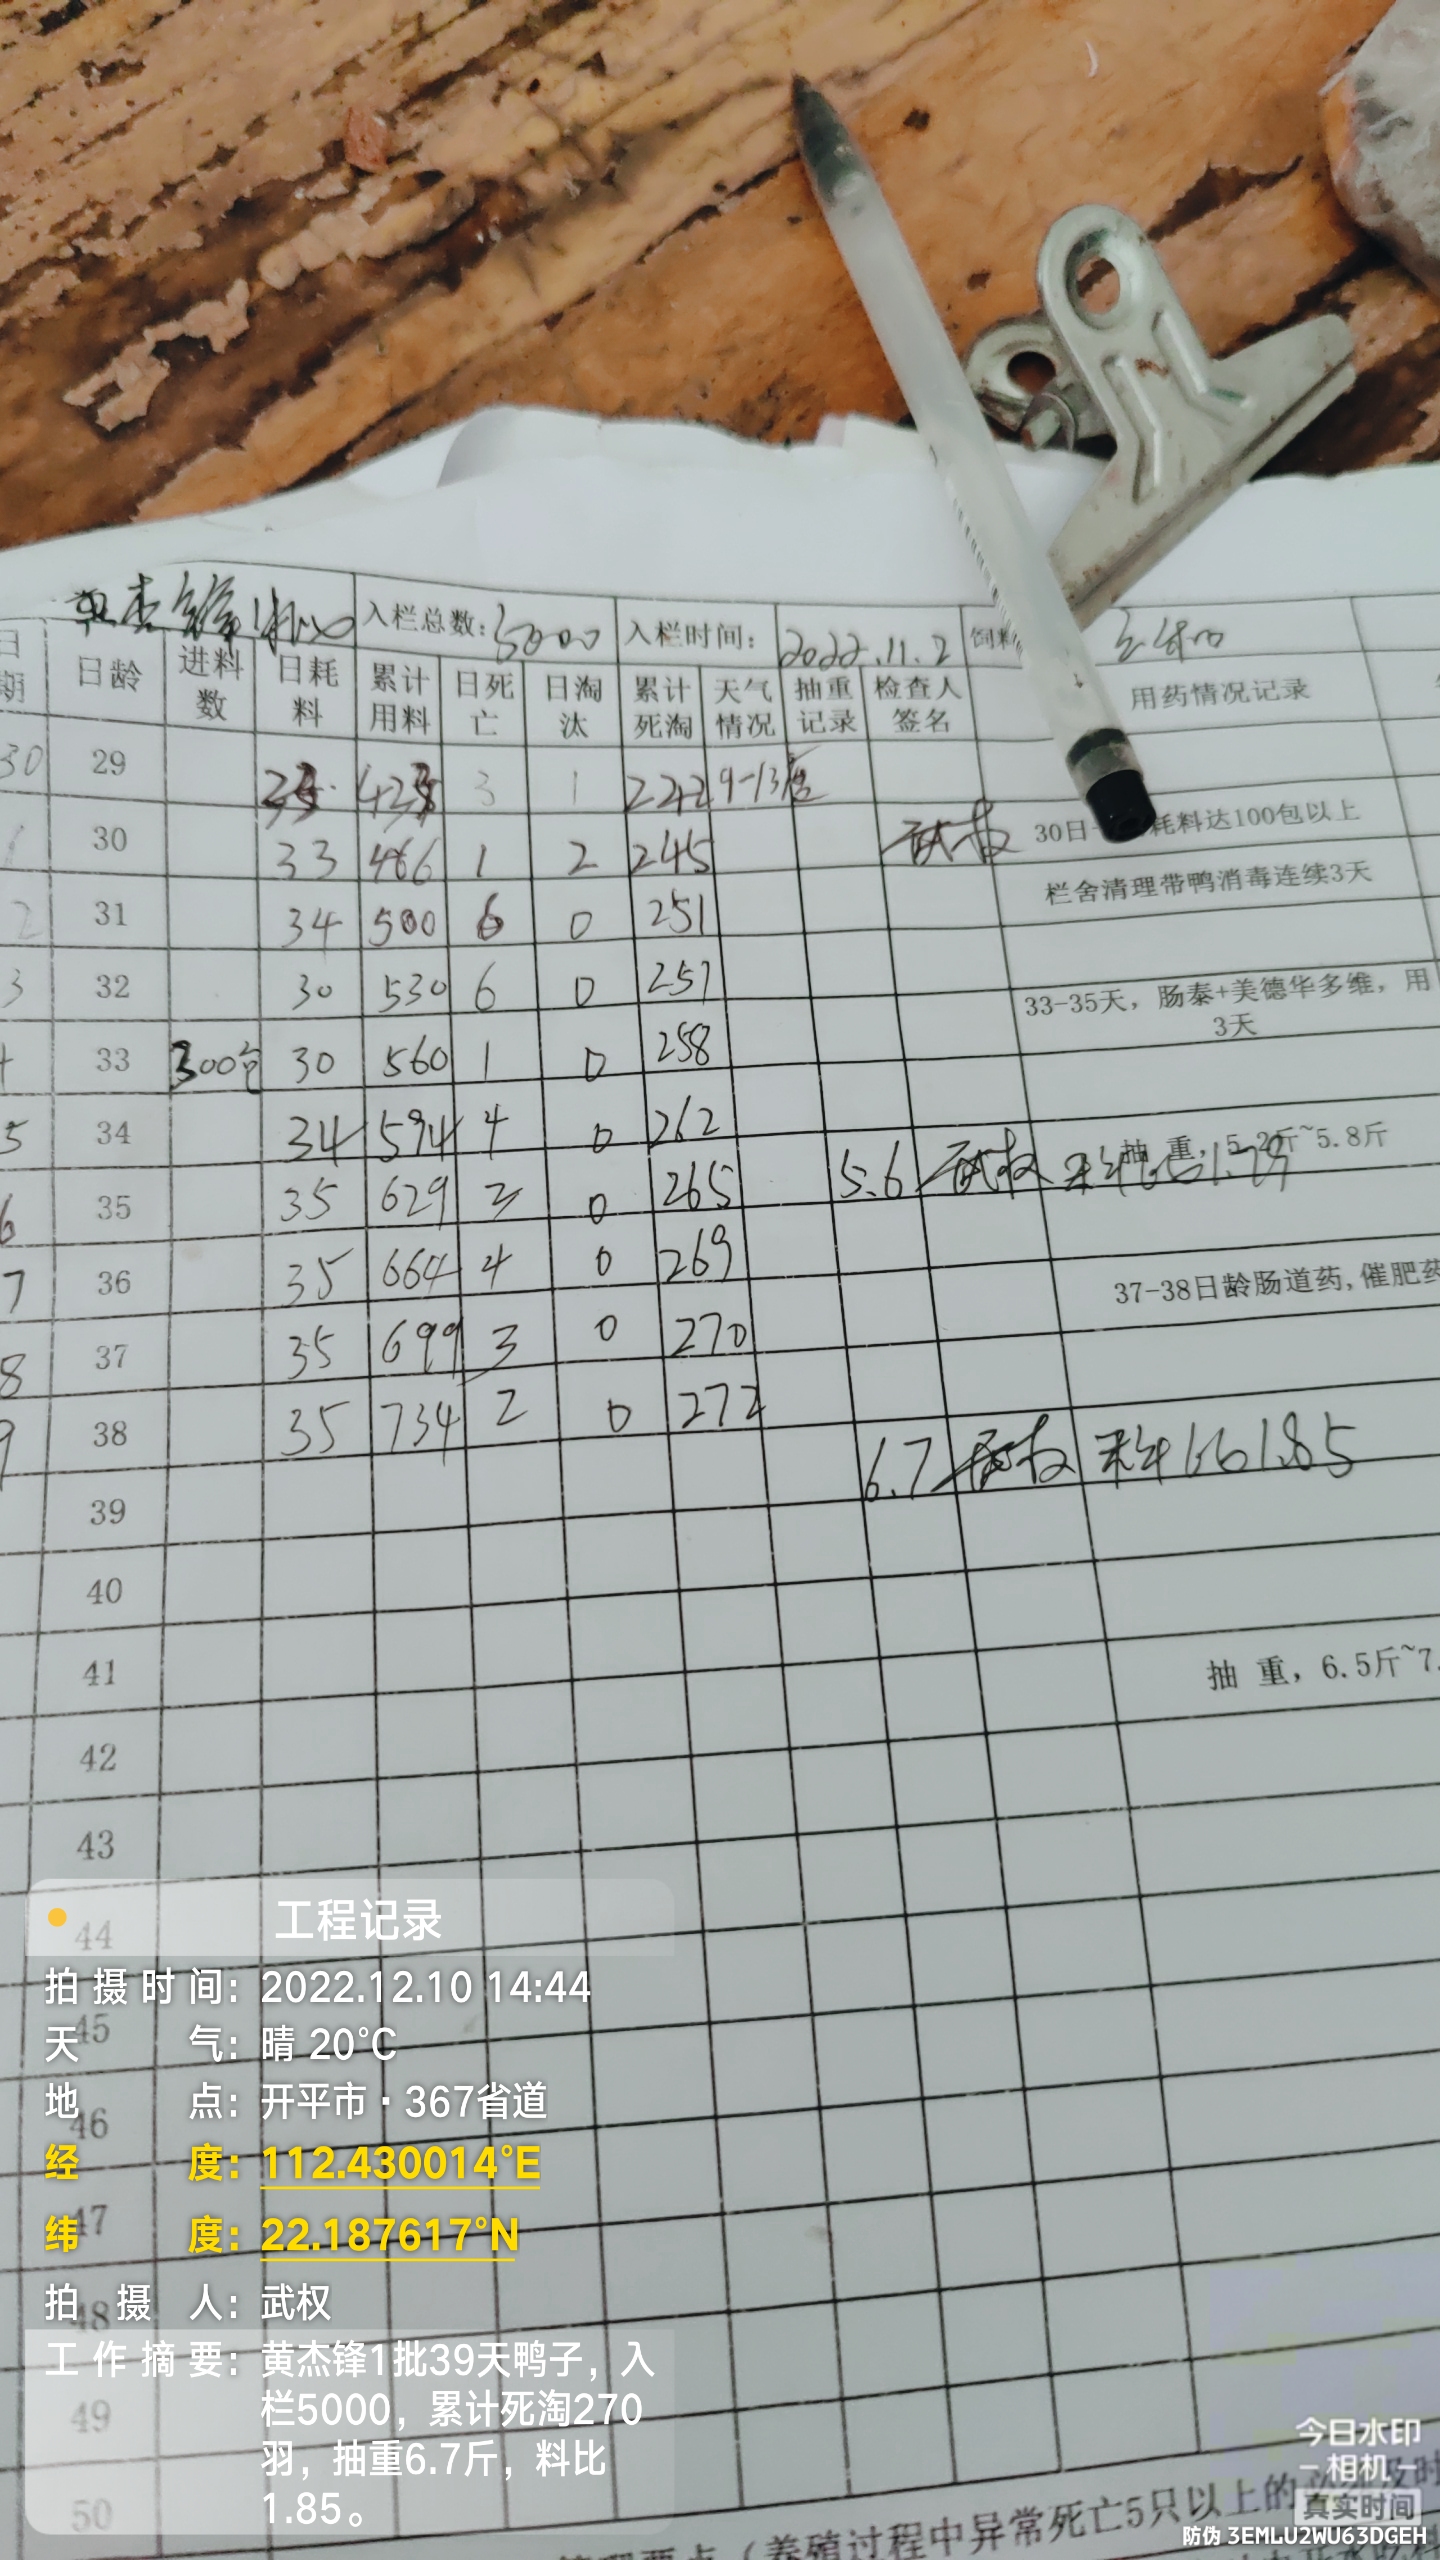 杰锋1批 入栏总数: 5000 入栏时间: 2022.11.2
日期 日龄 进料数 日耗料 累计用料 日死亡 日淘汰 累计死淘 天气情况 抽重记录 检查人签名 用药情况记录
30 29 3 1 242 9-13度
30 33 466 1 2 245 武权 30日 耗料达100包以上
2 31 34 500 6 0 251 栏舍清理带鸭消毒连续3天
3 32 30 530 6 0 257
33 300包 30 560 1 0 258 33-35天，肠泰+美德华多维，用3天
5 34 34 594 4 0 262
6 35 35 629 3 0 265 5.6 武权 料比1.79 抽 重，5.2斤~5.8斤
7 36 35 664 4 0 269
8 37 35 699 3 0 270 37-38日龄肠道药,催肥药
9 38 35 734 2 0 272
39 6.7 武权 料比1.85
40
41
42 抽 重，6.5斤~7.
43
44
45
46
47
48
49
50
（养殖过程中异常死亡5只以上的
工程记录
拍摄时间：2022.12.10 14:44
天气：晴 20°C
地点：开平市·367省道
经度：112.430014°E
纬度：22.187617°N
拍摄人：武权
工作摘要：黄杰锋1批39天鸭子，入
栏5000，累计死淘270
羽，抽重6.7斤，料比
1.85。
今日水印
相机
真实时间
防伪 3EMLU2WU63DGEH